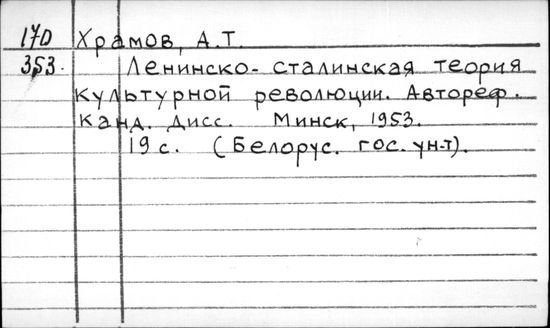 170 Храмов, А.Т.
353. Ленинско-сталинская теория
культурной революции. Автореф.
канд. дисс. Минск, 1953.
19 с. (Белорус. гос. ун-т).